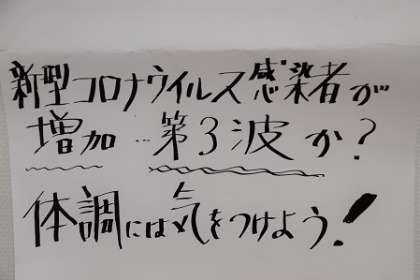 新型コロナウイルス感染者が
増加…第3波か?
体調には気をつけよう!